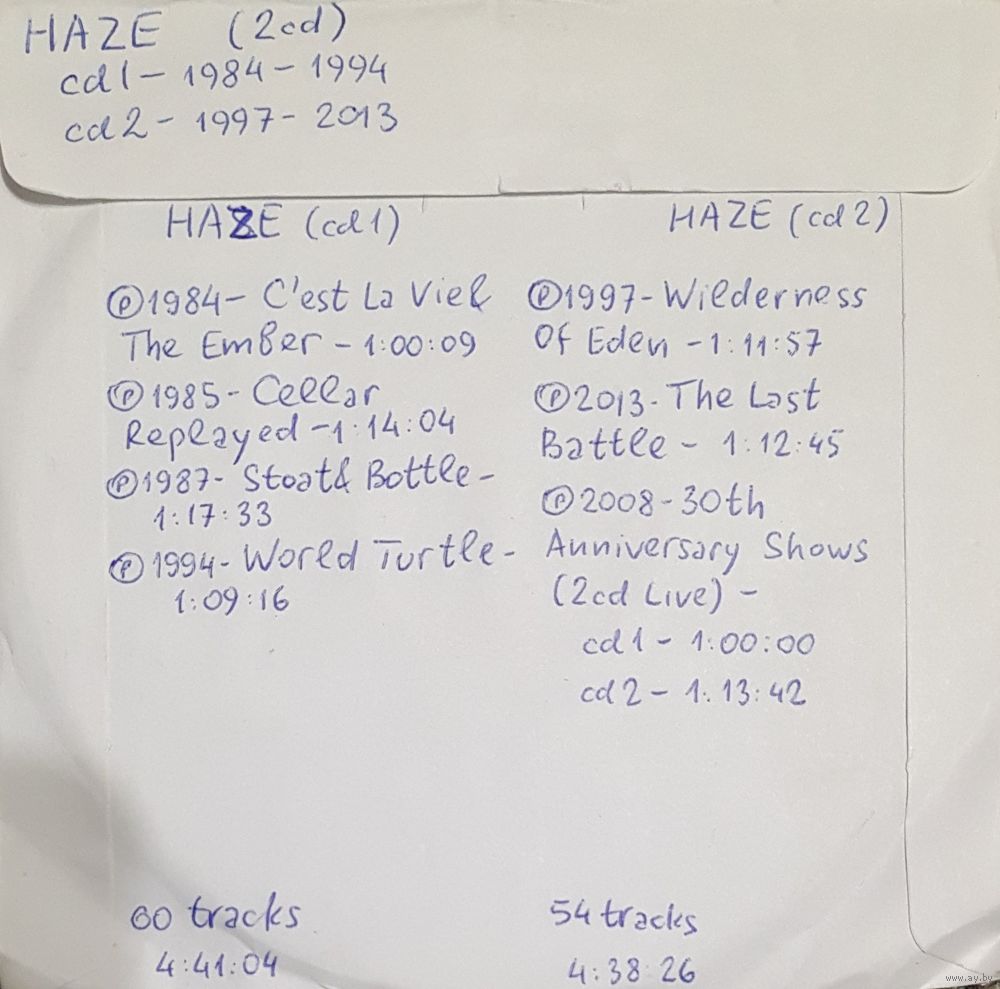 HAZE (2cd)
cd1 - 1984 - 1994
cd2 - 1997 - 2013
HAZE (cd1)
Ⓟ1984 - C'est La Vie &
The Ember - 1:00:09
Ⓟ1985 - Cellar
Replayed - 1:14:04
Ⓟ1987 - Stoat & Bottle -
1:17:33
Ⓟ1994 - World Turtle -
1:09:16
60 tracks
4:41:04
HAZE (cd2)
Ⓟ1997 - Wilderness
Of Eden - 1:11:57
Ⓟ2013 - The Last
Battle - 1:12:45
Ⓟ2008 - 30th
Anniversary Shows
(2cd Live) -
cd1 - 1:00:00
cd2 - 1:13:42
54 tracks
4:38:26
www.ay.by